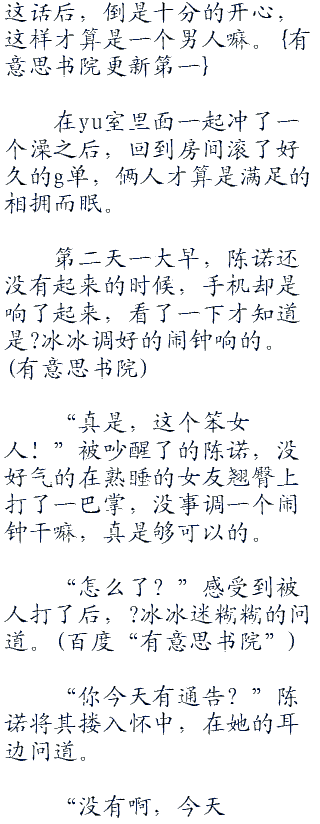 这话后，倒是十分的开心，
这样才算是一个男人嘛。{有
意思书院更新第一}
在yu室里面一起冲了一
个澡之后，回到房间滚了好
久的g单，俩人才算是满足的
相拥而眠。
第二天一大早，陈诺还
没有起来的时候，手机却是
响了起来，看了一下才知道
是?冰冰调好的闹钟响的。
(有意思书院)
“真是，这个笨女
人！”被吵醒了的陈诺，没
好气的在熟睡的女友翘臀上
打了一巴掌，没事调一个闹
钟干嘛，真是够可以的。
“怎么了？”感受到被
人打了后，?冰冰迷糊糊的问
道。(百度“有意思书院”)
“你今天有通告？”陈
诺将其搂入怀中，在她的耳
边问道。
“没有啊，今天